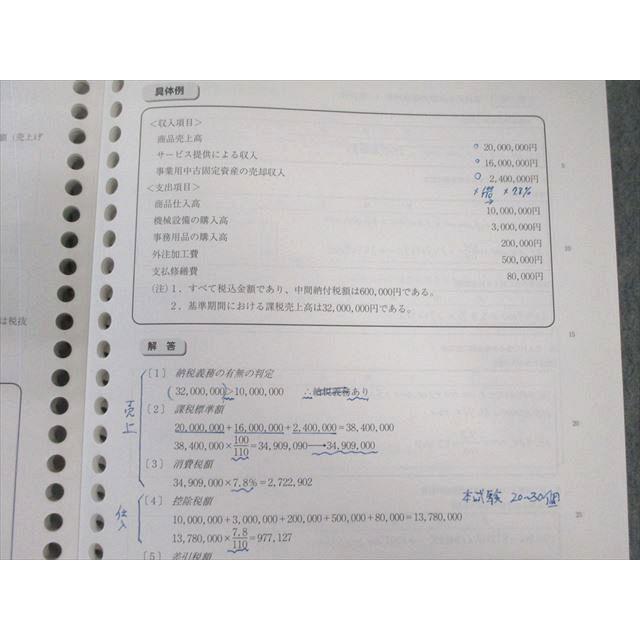 具体例
<収入項目>
商品売上高 20,000,000円
サービス提供による収入 16,000,000円
事業用中古固定資産の売却収入 2,400,000円
<支出項目>
× 100/110 × 7.8%
商品仕入高 10,000,000円
機械設備の購入高 3,000,000円
事務用品の購入高 200,000円
外注加工費 500,000円
支払修繕費 80,000円
(注) 1. すべて税込金額であり、中間納付税額は600,000円である。
2. 基準期間における課税売上高は32,000,000円である。
解答
〔1〕 納税義務の有無の判定
32,000,000>10,000,000 ∴納税義務あり
〔2〕 課税標準額
20,000,000+16,000,000+2,400,000=38,400,000
38,400,000×100/110=34,909,090→34,909,000
〔3〕 消費税額
34,909,000×7.8%=2,722,902
売上
〔4〕 控除税額
本試験 20~30個
10,000,000+3,000,000+200,000+500,000+80,000=13,780,000
13,780,000×7.8/110=977,127
仕入
〔5〕 差引税額
額(売上げ
は税抜
5
10
15
20
25